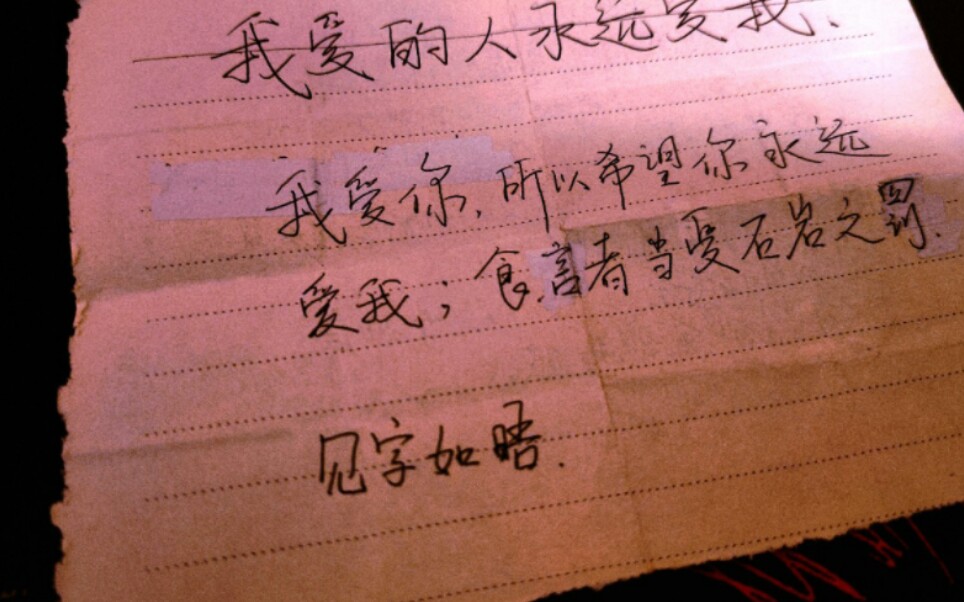 我爱的人永远爱我、
我爱你、所以希望你永远
爱我；食言者当受石岩之罚.
见字如晤.